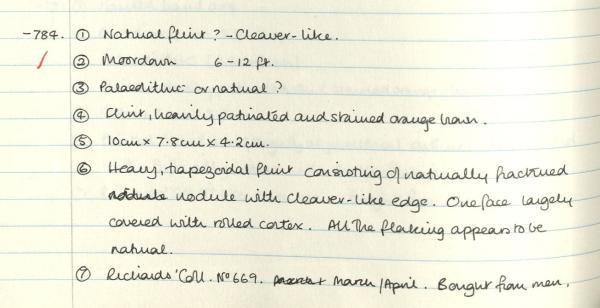 -784. ① Natural flint? - Cleaver-like.
② Moordown 6-12 ft.
③ Palaeolithic or natural?
④ Flint, heavily patinated and stained orange brown.
⑤ 10cm x 7.8cm x 4.2cm.
⑥ Heavy, trapezoidal flint consisting of naturally fractured
nodule with cleaver-like edge. One face largely
covered with rolled cortex. All the flaking appears to be
natural.
⑦ Richards' Coll. No 669. March/April. Bought from men.